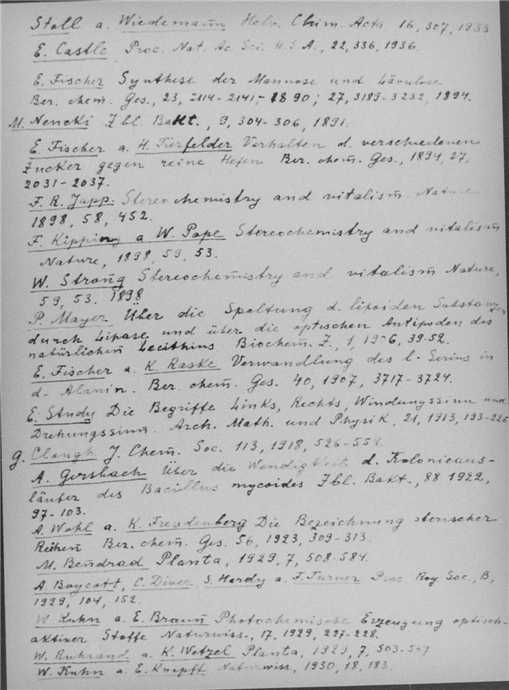 Stoll a. Wiedemann Helv. Chim. Acta 16, 307, 1933
E. Castle Proc. Nat. Ac. Sci. U.S.A., 22, 336, 1936.
E. Fischer Synthese der Mannose und Lävulose
Ber. chem. Ges., 23, 2114-2141,- 1890; 27, 3189-3232, 1894.
M. Nencki Zbl. Bakt., 9, 304-306, 1891.
E. Fischer a. H. Tierfelder Verhalten d. verschiedenen
Zucker gegen reine Hefen Ber. chem. Ges., 1894, 27,
2031-2037.
F. R. Japp. Stereochemistry and vitalism. Nature
1898, 58, 452.
F. Kipping a W. Pope Stereochemistry and vitalism
Nature, 1898, 59, 53.
W. Strong Stereochemistry and vitalism Nature,
59, 53. 1898.
P. Mayer Über die Spaltung d. lipoiden Substanzen
durch Lipase und über die optischen Antipoden des
natürlichen Lecithins Biochem. Z., 1, 1906, 39-52.
E. Fischer a. K. Raske Verwandlung des l-Serins in
d-Alanin. Ber. chem. Ges. 40, 1907, 3717-3724.
E. Study Die Begriffe Links, Rechts, Windungssinn und
Drehungssinn. Arch. Math. und Physik, 21, 1913, 193-225
G. Clough J. Chem. Soc. 113, 1918, 526-554.
A. Gersbach Über die Wendigkeit d. Kolonieaus-
läufer des Bacillus mycoides Zbl. Bakt., 88 1922,
97-103.
A. Wohl a. K. Freudenberg Die Bezeichnung sterischer
Reihen Ber. chem. Ges. 56, 1923, 309-313.
M. Bendrad Planta, 1929, 7, 508-584.
A. Boycott, C. Diver, S. Hardy a. F. Turner Proc. Roy. Soc., B,
1929, 104, 152.
W. Kuhn a. E. Braun Photochemische Erzeugung optisch-
aktiver Stoffe Naturwiss., 17, 1929, 227-228.
W. Ruhrand a. K. Wetzel Planta, 1929, 7, 503-507
W. Kuhn a. E. Knopff Naturwiss., 1930, 18, 183.